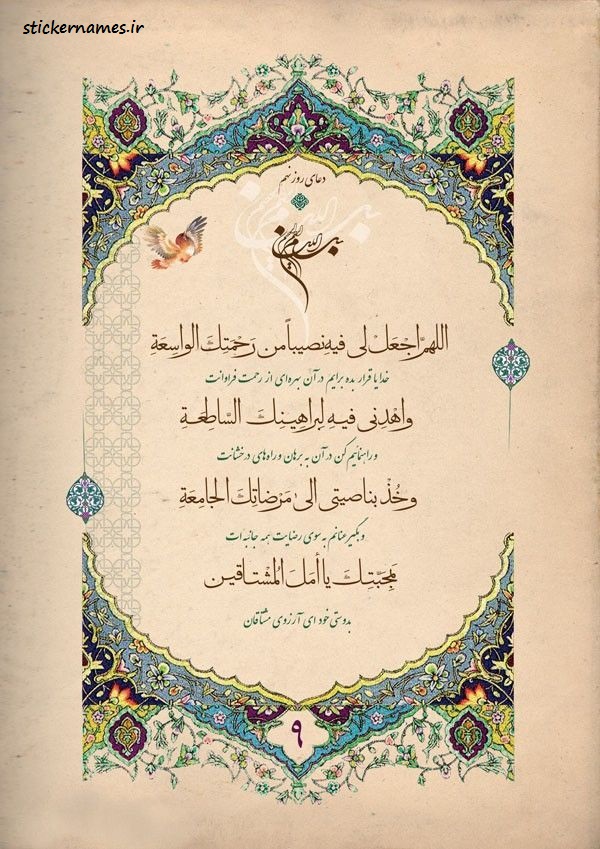 stickernames.ir
دعای روز نهم
بسم الله الرحمن الرحیم
اللهمَّ اجْعَلْ لی فیهِ نصیباً من رَحمَتِكَ الواسِعَةِ
خدایا قرار بده برایم در آن بهره‌ای از رحمت فراوانت
واهْدِنی فیهِ لِبراهینِكَ السّاطِعَةِ
و راهنماییم کن در آن به برهان و راه‌های درخشانت
وخُذْ بناصیتی الیٰ مَرْضاتِكَ الجامِعَةِ
و بگیر عنانم به سوی رضایت همه جانبه‌ات
بِمَحَبَّتِكَ یا أمَلَ المُشْتاقین
بدوستی خود ای آرزوی مشتاقان
۹